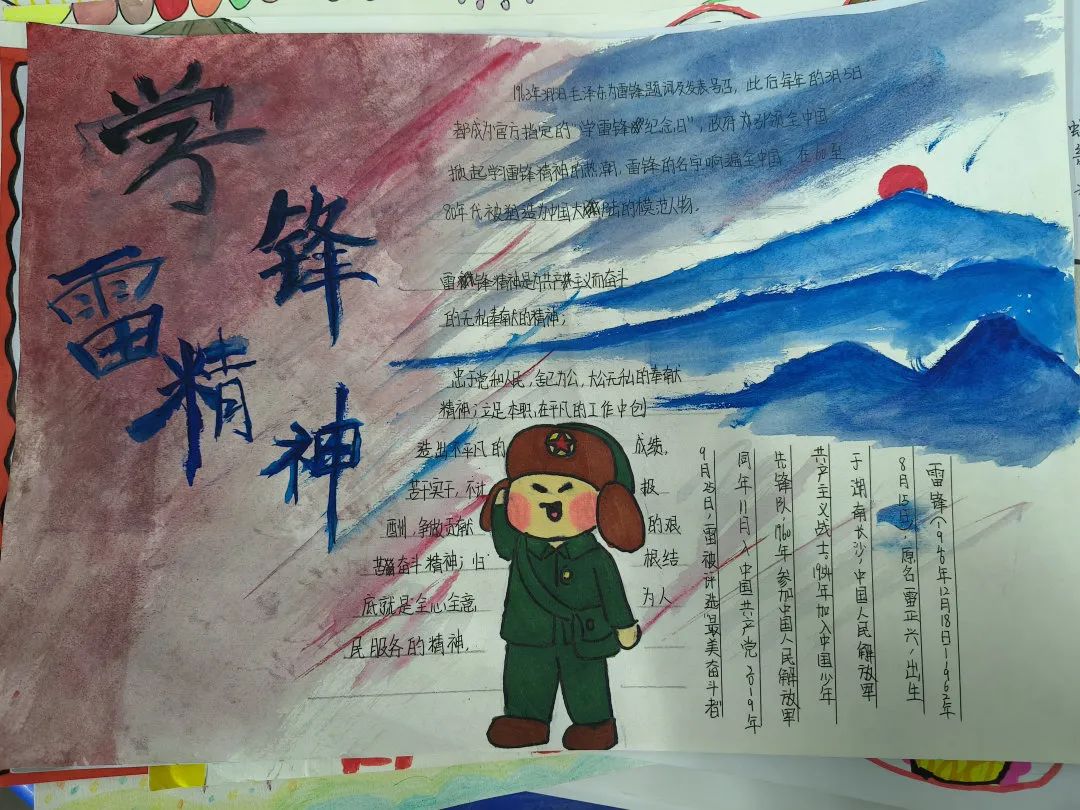 学
雷
锋
精
神
1963年3月5日毛泽东为雷锋题词及发表号召，此后每年的3月5日
都成为官方指定的“学雷锋纪念日”，政府为引领全中国
掀起学雷锋精神的热潮，雷锋的名字响遍全中国，在
80年代被塑造为中国大陆的模范人物。
雷锋精神是为共产主义而奋斗
的无私奉献的精神；
忠于党和人民，舍己为公，大公无私的奉献
精神；立足本职，在平凡的工作中创
造出不平凡的 成绩，
苦干实干，不计 报
酬，争做贡献 的艰
苦奋斗精神；归 根结
底就是全心全意 为人
民服务的精神。
雷锋（1940年12月18日—1962年
8月15日），原名雷正兴，出生
于湖南长沙，中国人民解放军
共产主义战士。1954年加入中国少年
先锋队，1960年参加中国人民解放军
同年11月入中国共产党 2019年
9月25日，雷被评选“最美奋斗者